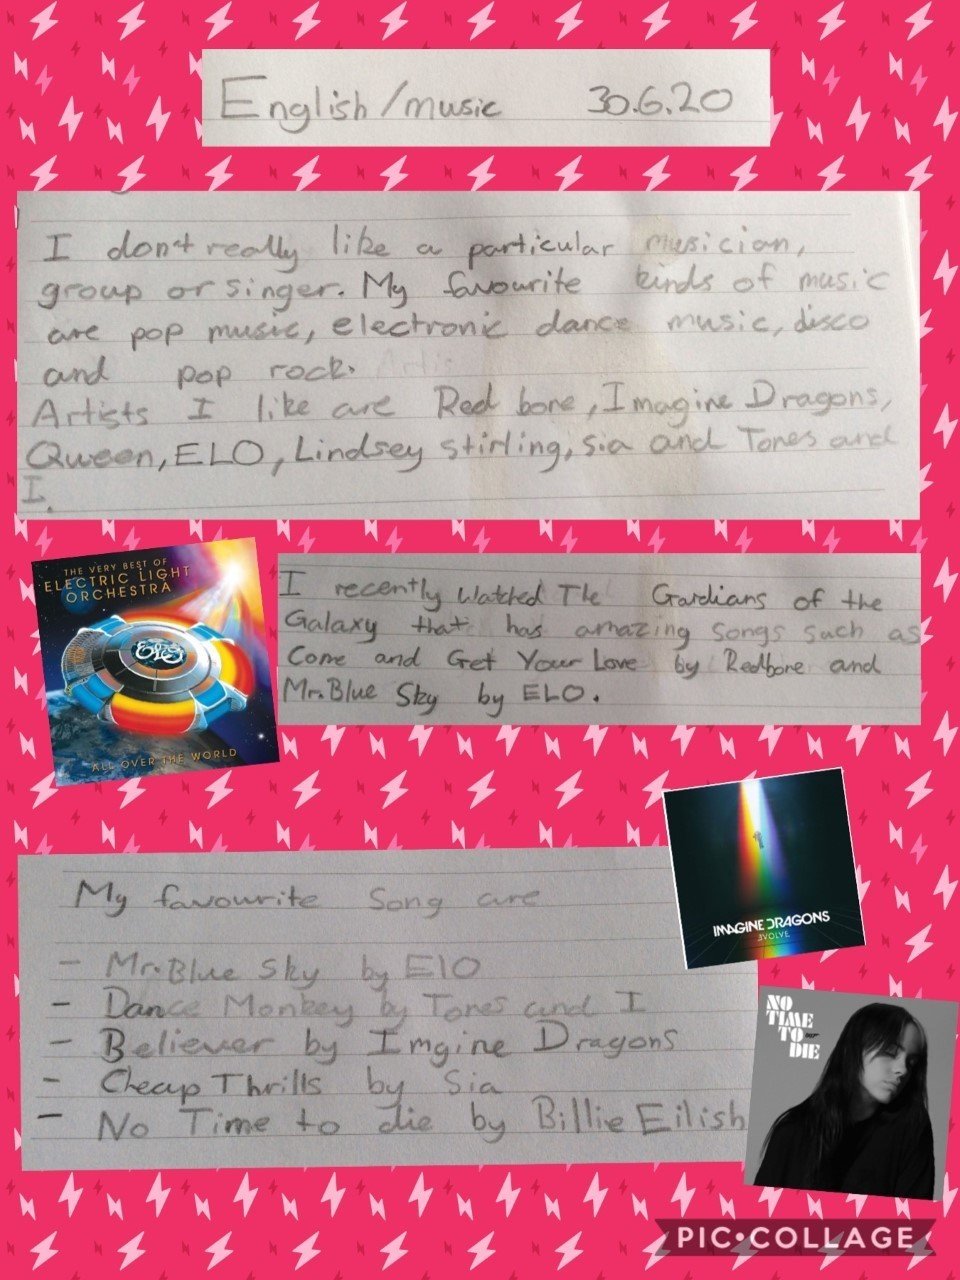 English/music 30.6.20
I don't really like a particular musician,
group or singer. My favourite kinds of music
are pop music, electronic dance music, disco
and pop rock. Artis
Artists I like are Red bone, Imagine Dragons,
Queen, ELO, Lindsey stirling, sia and Tones and
I.
THE VERY BEST OF
ELECTRIC LIGHT
ORCHESTRA
ELO
ALL OVER THE WORLD
I recently watched The Gardians of the
Galaxy that has amazing songs such as
Come and Get Your Love by Redbone and
Mr. Blue Sky by ELO.
IMAGINE DRAGONS
EVOLVE
My favourite song are
- Mr. Blue Sky by ElO
- Dance Monkey by Tones and I
- Believer by Imgine Dragons
- Cheap Thrills by Sia
- No Time to die by Billie Eilish
NO
TIME
TO 007
DIE
PIC•COLLAGE